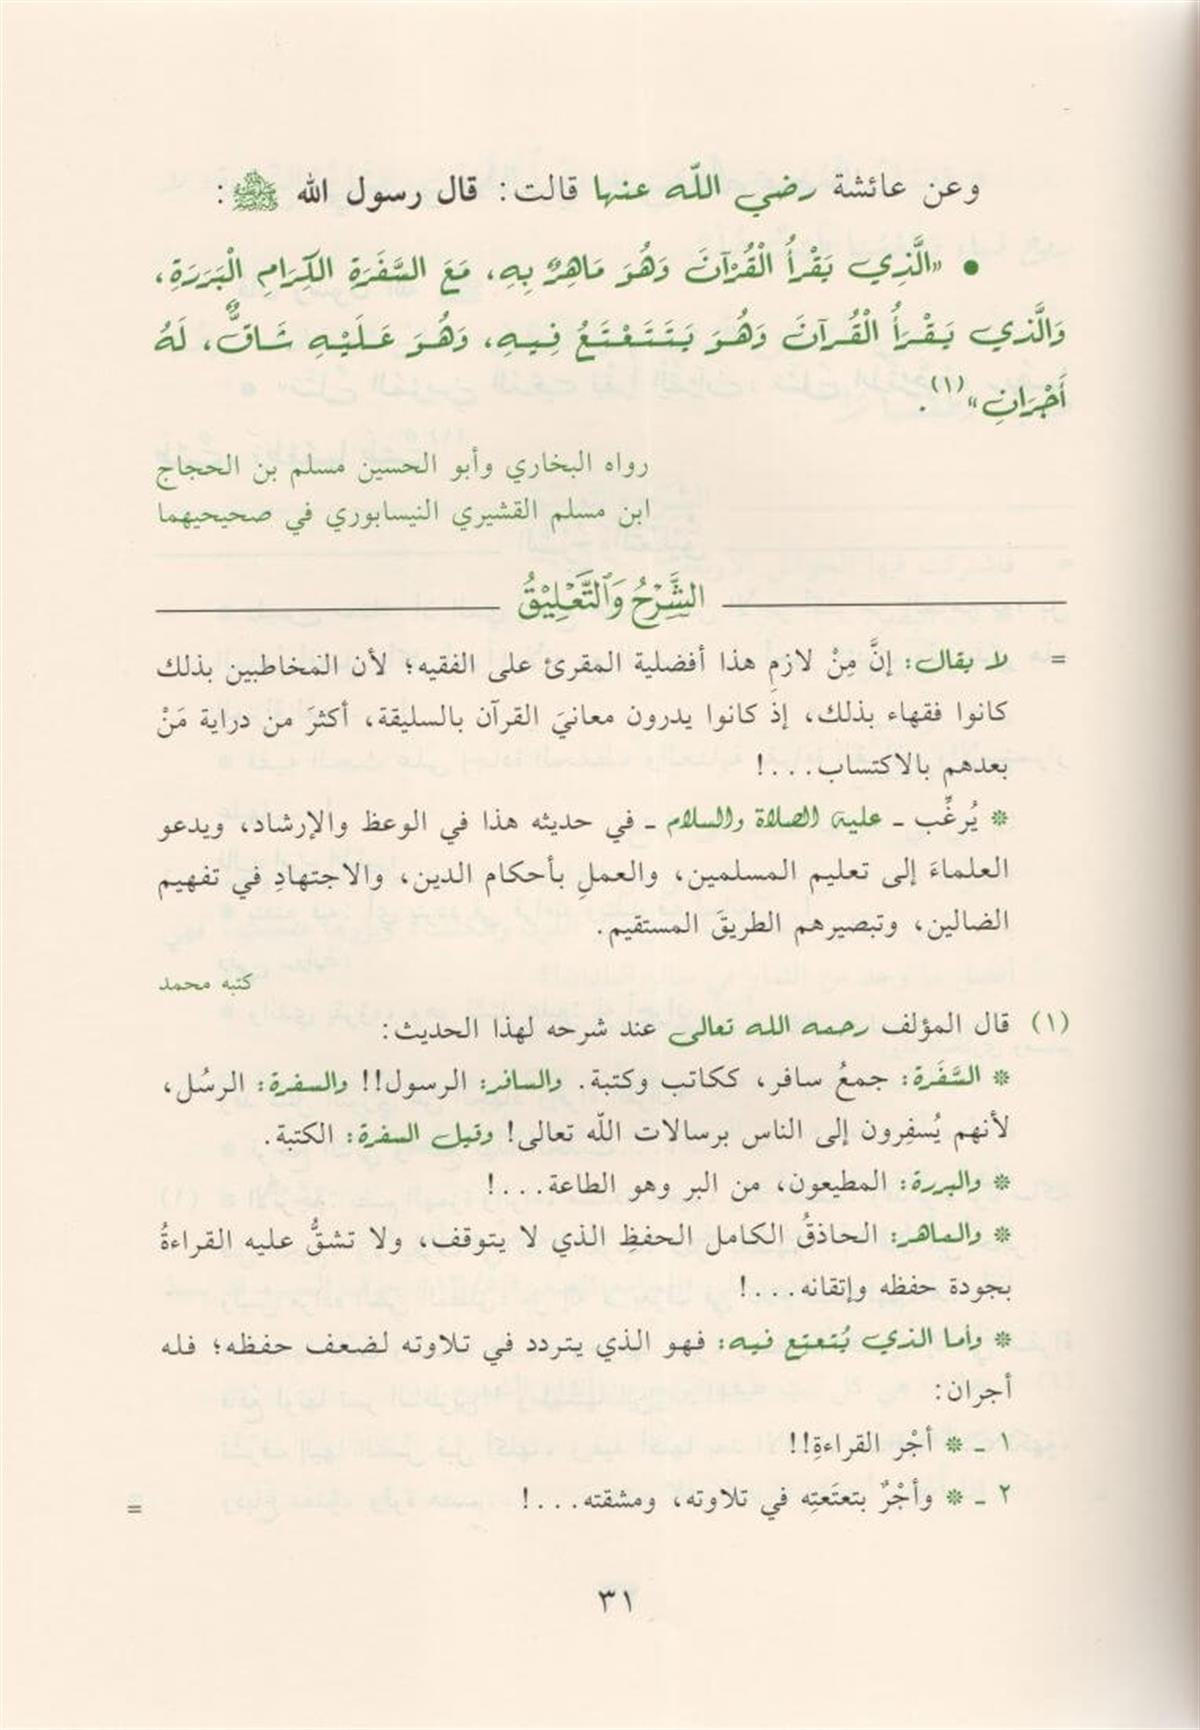 وعن عائشة رضي الله عنها قالت: قال رسول الله ﷺ:
• «الَّذِي يَقْرَأُ الْقُرْآنَ وَهُوَ مَاهِرٌ بِهِ، مَعَ السَّفَرَةِ الكِرَامِ الْبَرَرَةِ،
وَالَّذِي يَقْرَأُ الْقُرآنَ وَهُوَ يَتَتَعْتَعُ فِيهِ، وَهُوَ عَلَيْهِ شَاقٌّ، لَهُ
أَجْرَانِ»(١).
رواه البخاري وأبو الحسين مسلم بن الحجاج
ابن مسلم القشيري النيسابوري في صحيحيهما
الشَّرْحُ وَالتَّعْلِيْقُ
= لا يقال: إنَّ مِنْ لازمِ هذا أفضلية المقرئ على الفقيه؛ لأن المخاطبين بذلك
كانوا فقهاء بذلك، إذ كانوا يدرون معانيَ القرآن بالسليقة، أكثرَ من دراية مَنْ
بعدهم بالاكتساب...!
* يُرغِّب ـ عليه الصلاة والسلام ـ في حديثه هذا في الوعظ والإرشاد، ويدعو
العلماءَ إلى تعليم المسلمين، والعملِ بأحكام الدين، والاجتهادِ في تفهيم
الضالين، وتبصيرهم الطريقَ المستقيم.
كتبه محمد
(١) قال المؤلف رحمه الله تعالى عند شرحه لهذا الحديث:
* السَّفَرة: جمعُ سافر، ككاتب وكتبة. والسافر: الرسول!! والسفرة: الرسُل،
لأنهم يُسفِرون إلى الناس برسالات اللّه تعالى! وقيل السفرة: الكتبة.
* والبررة: المطيعون، من البر وهو الطاعة...!
* والماهر: الحاذقُ الكامل الحفظِ الذي لا يتوقف، ولا تشقُّ عليه القراءةُ
بجودة حفظه وإتقانه...!
* وأما الذي يُتعتع فيه: فهو الذي يتردد في تلاوته لضعف حفظه؛ فله
أجران:
١ ـ * أجْر القراءةِ!!
٢ ـ * وأجْرٌ بتعتَعتِه في تلاوته، ومشقته...! =
٣١